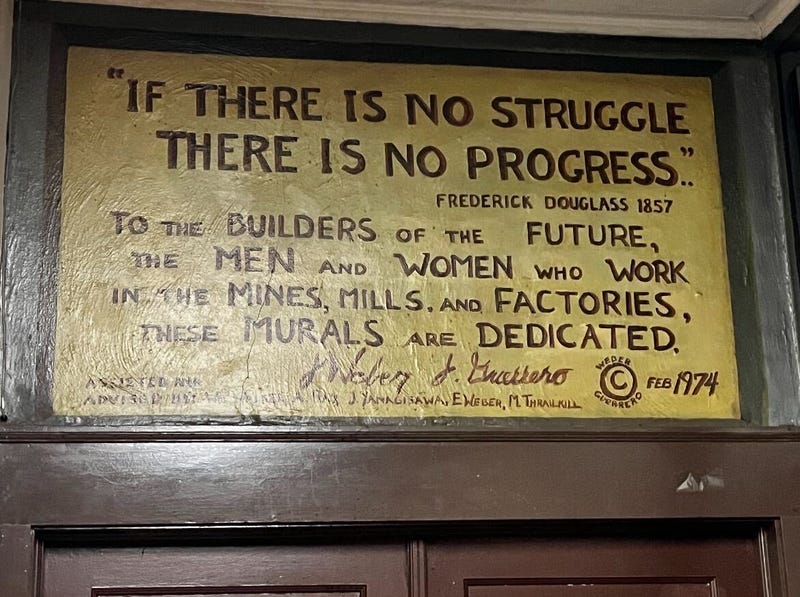 "IF THERE IS NO STRUGGLE
THERE IS NO PROGRESS."
FREDERICK DOUGLASS 1857
TO THE BUILDERS OF THE FUTURE,
THE MEN AND WOMEN WHO WORK
IN THE MINES, MILLS, AND FACTORIES,
THESE MURALS ARE DEDICATED.
J Weber J. Guerrero
WEBER © GUERRERO FEB 1974
ASSISTED AND
ADVISED J. YANAGISAWA, E. WEBER, M. THRAILKILL